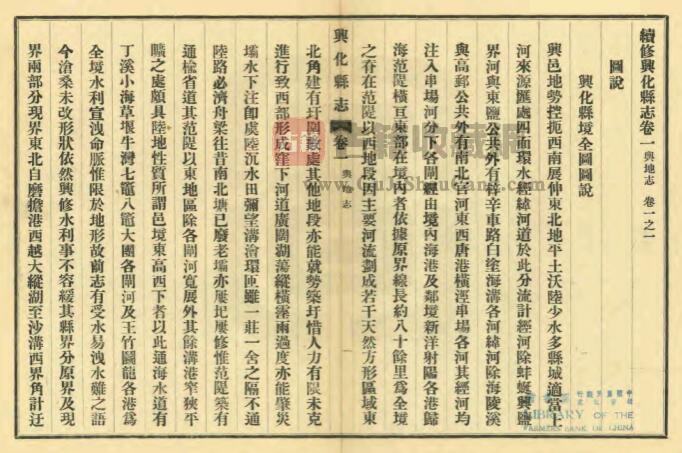 續修興化縣志卷一 輿地志 卷一之一
圖說
興化縣境全圖圖說
興邑地勢控扼西南展伸東北地平土沃陸少水多縣城適當上
河來源匯處四面環水經緯河道於此分流計經河除蚌蜒興鹽
界河與東鹽公共外有梓辛車路白塗海溝各河緯河除海陵溪
與高郵公共外有南北官河東西唐港橫涇串場各河其經河均
注入串場河分下各閘經由境內海港及鄰境新洋射陽各港歸
海范隄橫亙東部在境內者依據原界線長約八十餘里爲全境
之脊在范隄以西地段因主要河流劃成若干天然方形區域東
興化縣志 卷一 輿地志
北角建有圩圍數處其他地段亦能就勢築圩惜人力有限未克
進行致西部形成窪下河道廣闊湖蕩縱橫霪雨過度亦能肇災
壩水下注卽虞陸沉水田彌望溝澮環匝雖一莊一舍之隔不通
陸路必濟舟梁往昔南北塘已廢老壩亦屢圮屢修惟范隄築有
通楡省道其范隄以東地區除各閘河寬展外其餘溝港窄狹平
曠之處頗具陸地性質所謂邑境東高西下者以此通海水道有
丁溪小海草堰牛灣七竈八竈大團各閘河及王竹圖龍各港爲
全境水利宣洩命脈惟限於地形故前志有受水易洩水難之語
今滄桑未改形狀依然興修水利事不容緩其縣界分原界及現
界兩部分現界東北自磨擔港西越大縱湖至沙溝西界角計迂
LIBRARY OF THE
FARMERS BANK OF CHINA